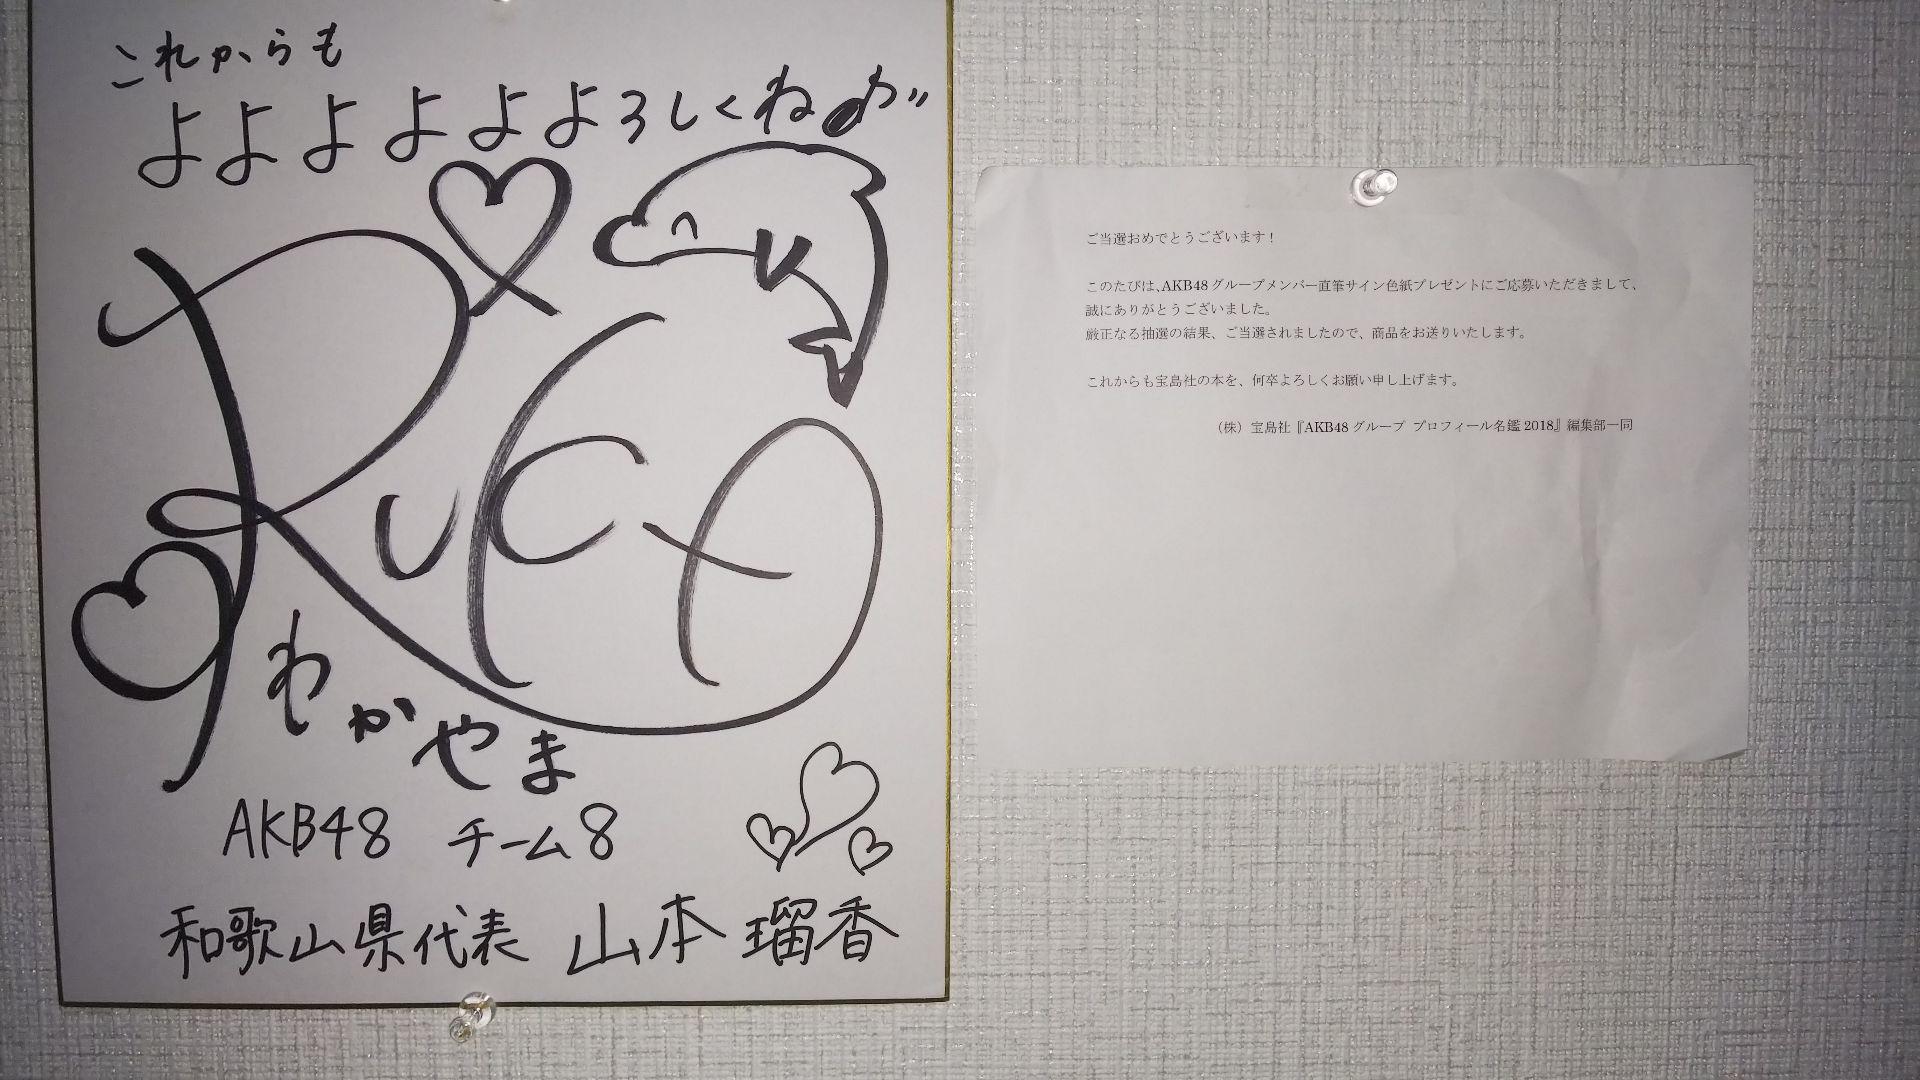 これからも
よよよよよよろしくねが"
RUKA
わかやま
AKB48 チーム8
和歌山県代表 山本 瑠香
ご当選おめでとうございます！
このたびは、AKB48グループメンバー直筆サイン色紙プレゼントにご応募いただきまして、
誠にありがとうございました。
厳正なる抽選の結果、ご当選されましたので、商品をお送りいたします。
これからも宝島社の本を、何卒よろしくお願い申し上げます。
（株）宝島社『AKB48グループ プロフィール名鑑2018』編集部一同